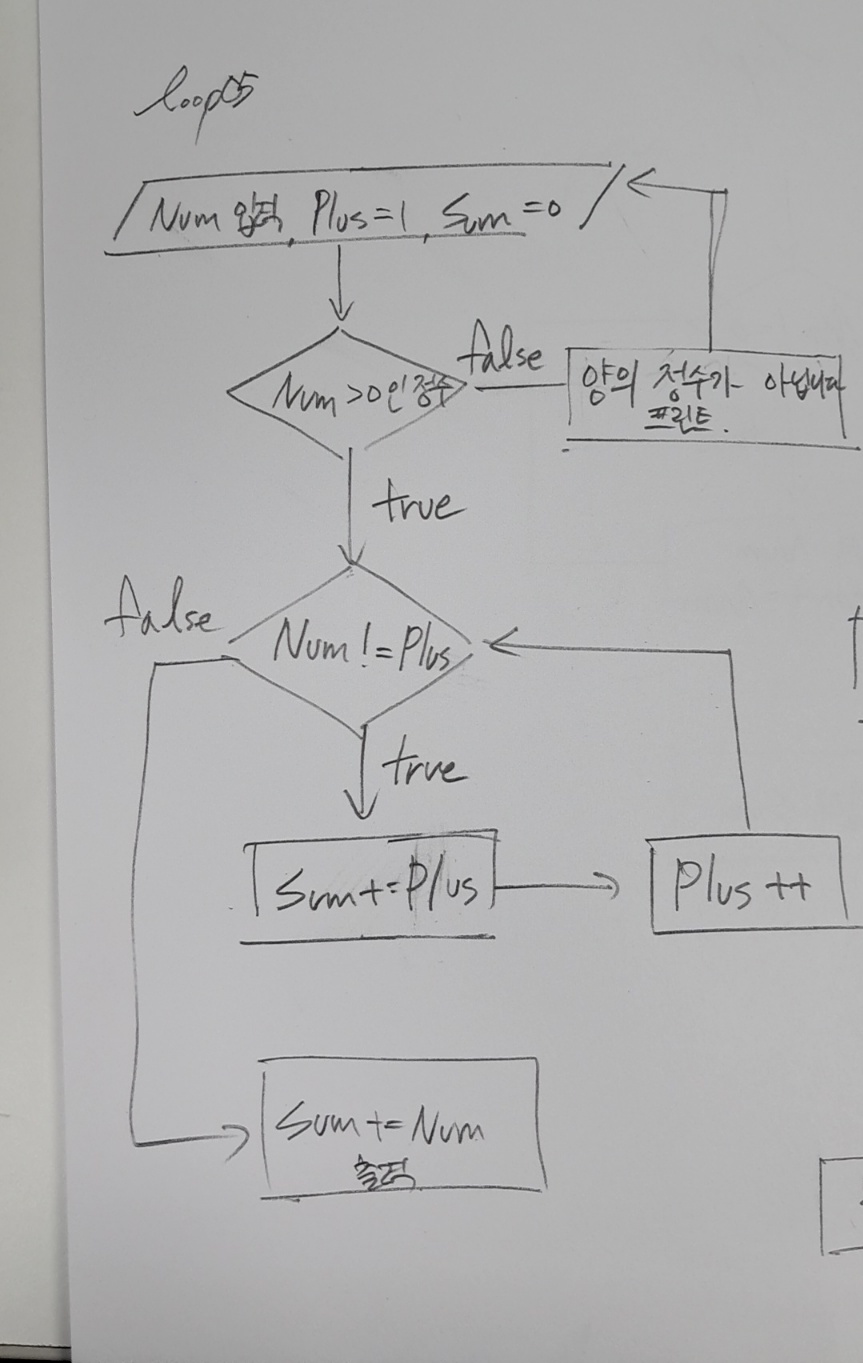 loop05
Num 입력, Plus=1, Sum=0
Num >0인 정수
false
양의 정수가 아닙니다
프린트.
true
false
Num != Plus
true
Sum+=Plus
Plus ++
Sum += Num
출력